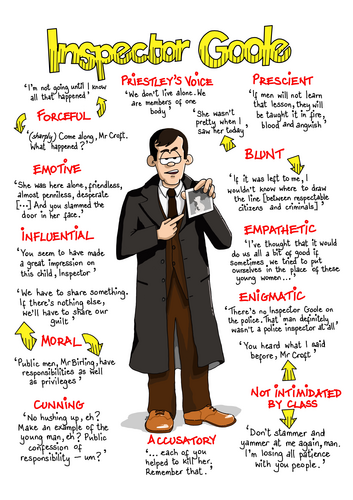 Inspector Goole
'I'm not going until I know
all that happened'
FORCEFUL
'(sharply) Come along, Mr Croft.
What happened?'
EMOTIVE
'She was here alone, friendless,
almost penniless, desperate
[...] And you slammed the
door in her face.'
INFLUENTIAL
'You seem to have made
a great impression on
this child, Inspector'
'We have to share something.
If there's nothing else,
we'll have to share our
guilt'
MORAL
'Public men, Mr Birling, have
responsibilities as well
as privileges'
CUNNING
'No hushing up, eh?
Make an example of the
young man, eh? Public
confession of
responsibility – um?'
PRIESTLEY'S VOICE
'We don't live alone. We
are members of one
body'
'She wasn't
pretty when I
saw her today'
ACCUSATORY
'... each of you
helped to kill her.
Remember that.'
PRESCIENT
'If men will not learn
that lesson, they will
be taught it in fire,
blood and anguish'
BLUNT
'If it was left to me, I
wouldn't know where to draw
the line [between respectable
citizens and criminals]'
EMPATHETIC
'I've thought that it would
do us all a bit of good if
sometimes we tried to put
ourselves in the place of these
young women...'
ENIGMATIC
'There's no Inspector Goole on
the police. That man definitely
wasn't a police inspector at all'
'You heard what I said
before, Mr Croft'
NOT INTIMIDATED
BY CLASS
'Don't stammer and
yammer at me again, man.
I'm losing all patience
with you people.'